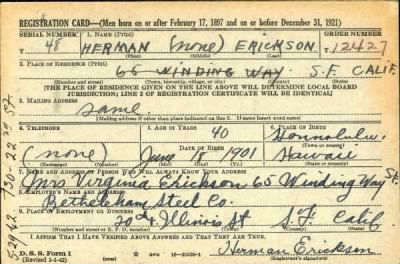 REGISTRATION CARD—(Men born on or after February 17, 1897 and on or before December 31, 1921)
SERIAL NUMBER 1. NAME (Print) ORDER NUMBER
48 HERMAN (none) ERICKSON 12427
(First) (Middle) (Last)
2. PLACE OF RESIDENCE (Print)
65 WINDING WAY S.F. CALIF.
(Number and street) (Town, township, village, or city) (County) (State)
[THE PLACE OF RESIDENCE GIVEN ON THE LINE ABOVE WILL DETERMINE LOCAL BOARD
JURISDICTION; LINE 2 OF REGISTRATION CERTIFICATE WILL BE IDENTICAL]
3. MAILING ADDRESS
Same.
[Mailing address if other than place indicated on line 2. If same insert word same]
4. TELEPHONE 5. AGE IN YEARS 6. PLACE OF BIRTH
40 Honolulu
DATE OF BIRTH (Town or county)
(none) June 18 1901 Hawaii
(Exchange) (Number) (Mo.) (Day) (Yr.) (State or country)
7. NAME AND ADDRESS OF PERSON WHO WILL ALWAYS KNOW YOUR ADDRESS
Mrs Virginia Erickson 65 Winding Way St
8. EMPLOYER'S NAME AND ADDRESS
Betheleham Steel Co.
9. PLACE OF EMPLOYMENT OR BUSINESS
20th Illinois St S.F. Calif
(Number and street or R. F. D. number) (Town) (County) (State)
I AFFIRM THAT I HAVE VERIFIED ABOVE ANSWERS AND THAT THEY ARE TRUE.
D. S. S. Form 1
(Revised 1-1-42) GPO Herman Erickson